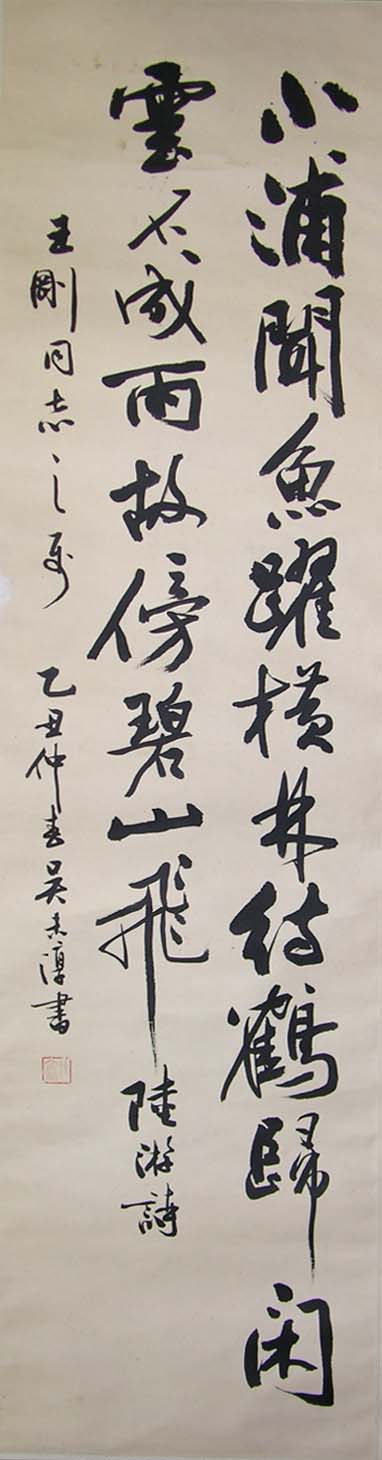 小浦聞魚躍橫林待鶴歸闲
雲不成雨故傍碧山飛 陸游詩
王剛同志之屬 乙丑仲春吴未淳書